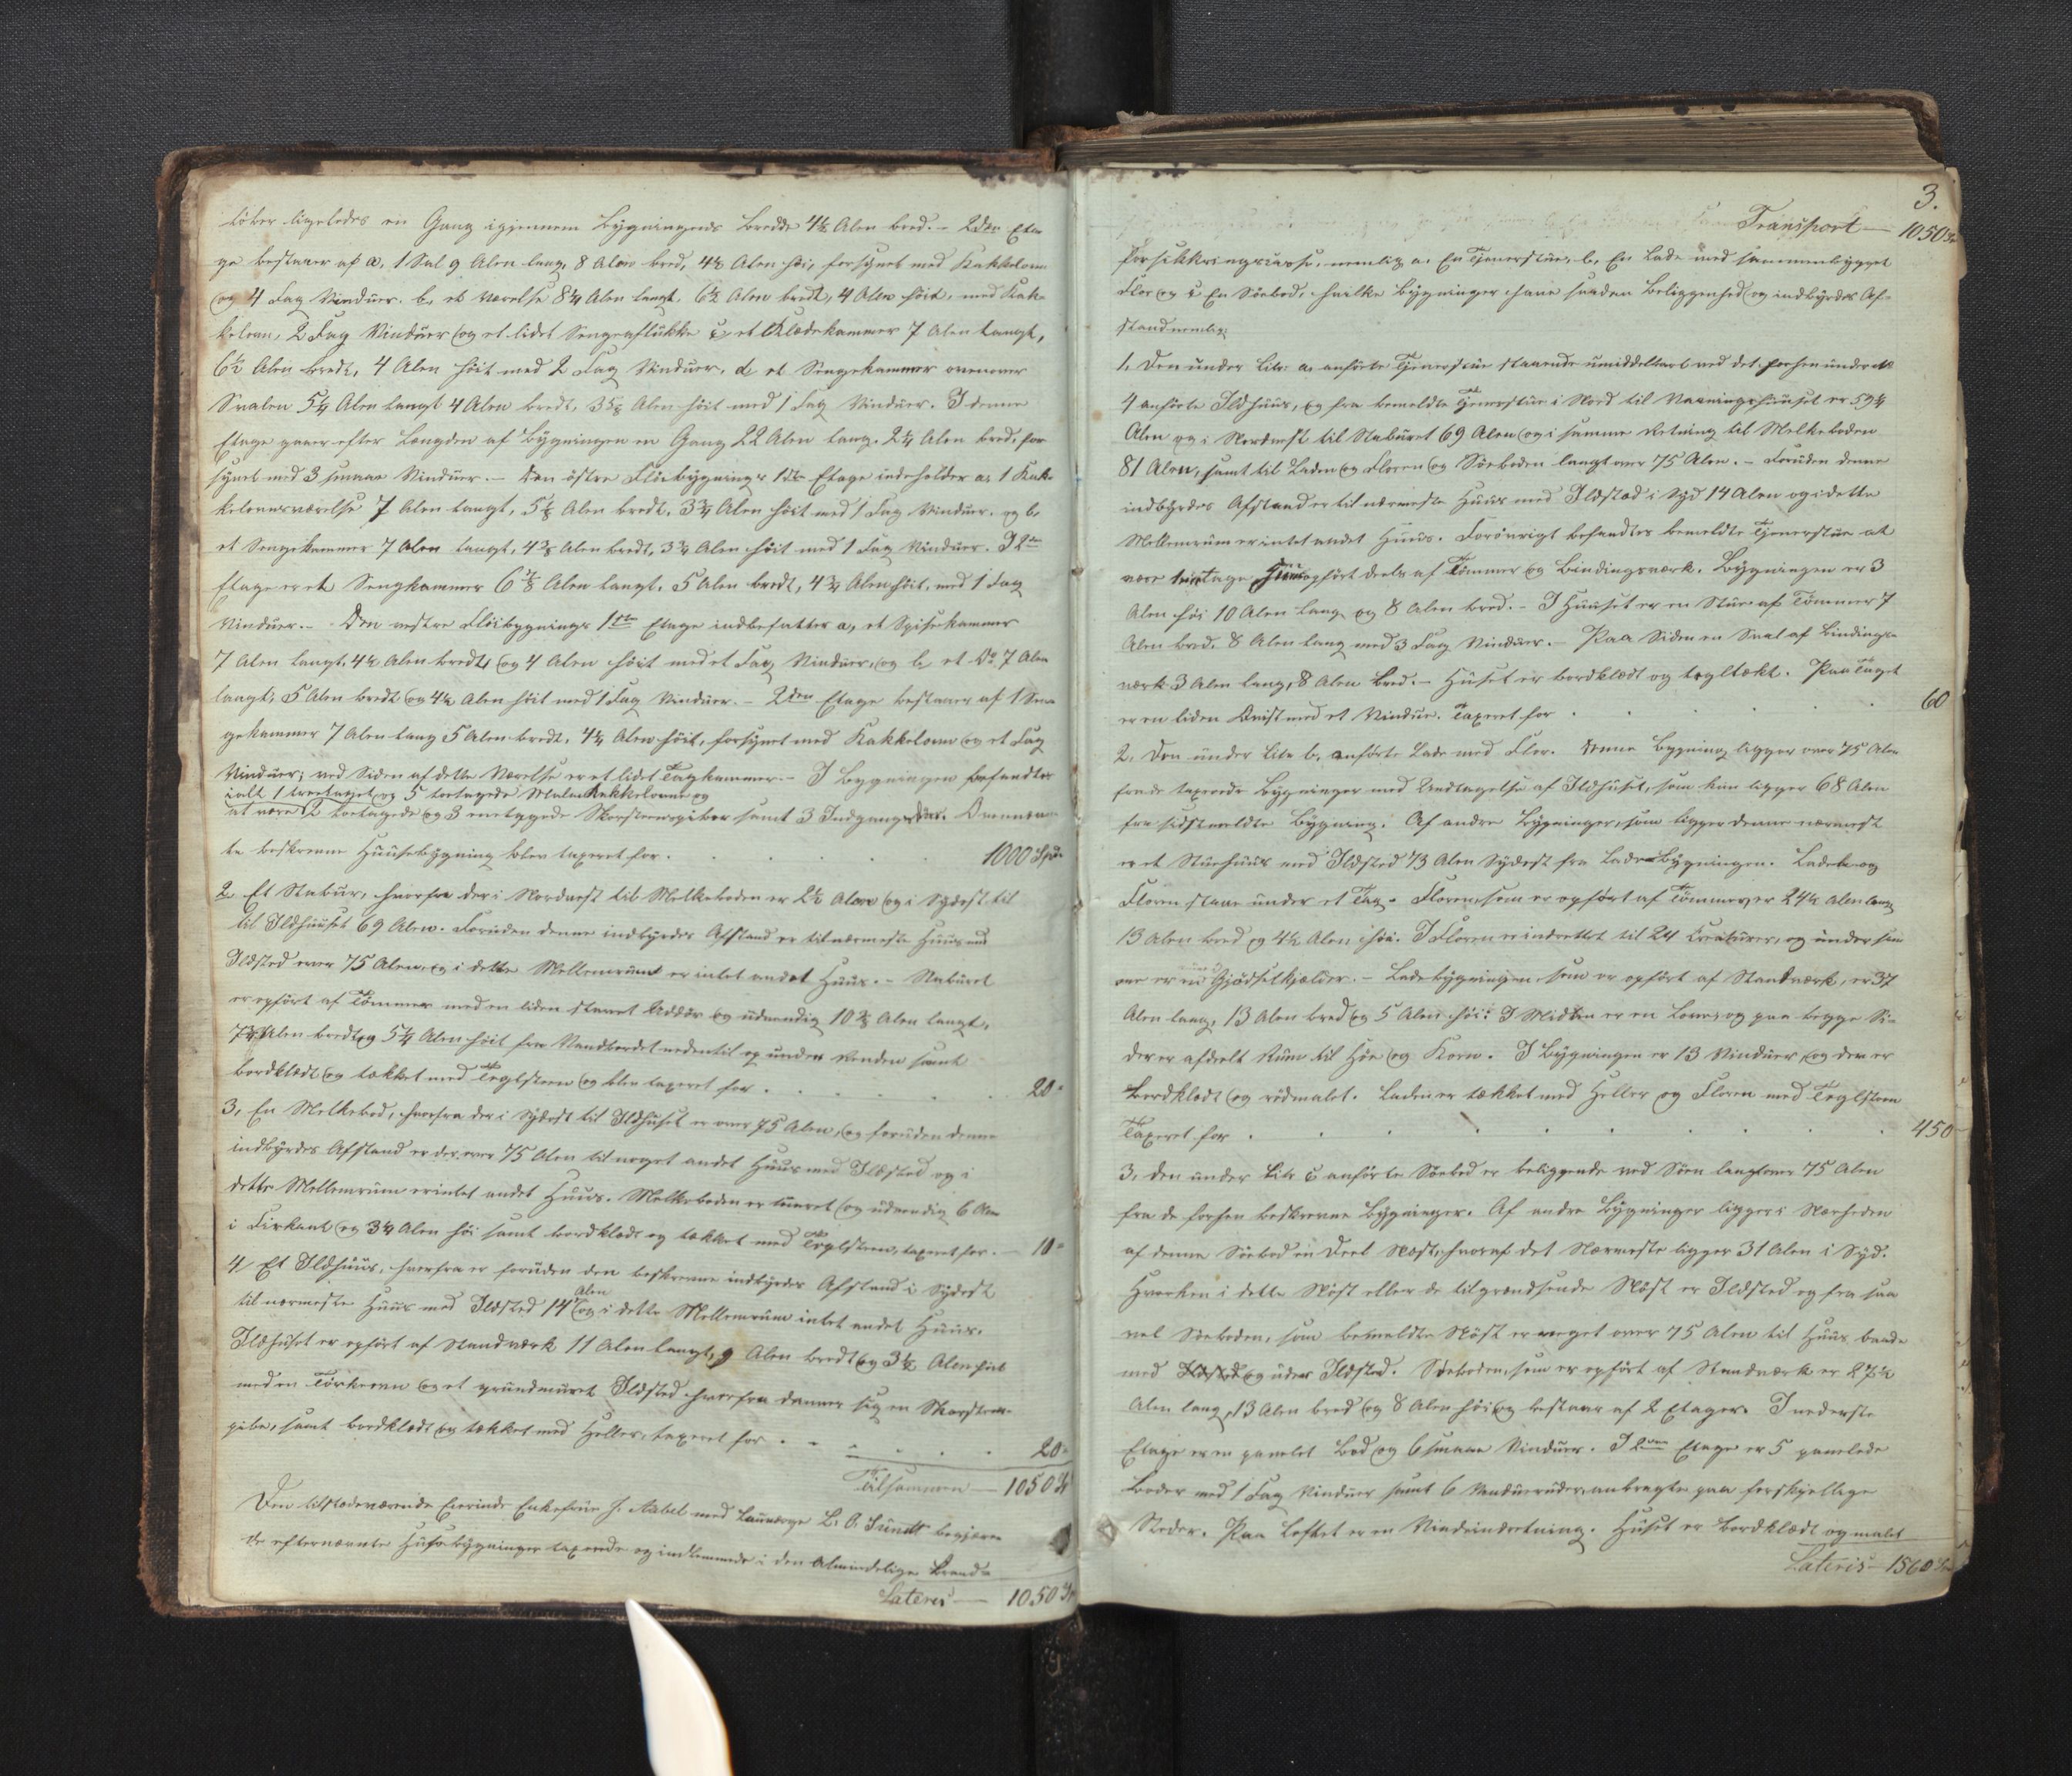 löber ligeledes en Gang igjennem Bygningens Bredde 4½ Alen bred. - 2den Eta-
ge bestaaer af a, 1 Sal 9 Alen lang, 8 Alen bred, 4½ Alen höi, forsynet med Kakkelovn
og 4 Fag Vinduer. b, et Værelse 8¼ Alen langt, 6½ Alen bredt, 4 Alen höit, med Kak-
kelovn, 2 Fag Vinduer og et lidet Sengeaflukke c, et Klædekammer 7 Alen langt,
6½ Alen bredt, 4 Alen höit med 2 Fag Vinduer, d, et Sengekammer ovenover
Svalen 5¼ Alen langt 4 Alen bredt, 3⅝ Alen höit med 1 Fag Vinduer. I denne
Etage gaaer efter Længden af Bygningen en Gang 22 Alen lang, 2¼ Alen bred, for-
synet med 3 smaae Vinduer. - Den östre Flöibygnings 1ste Etage indeholder a, 1 Kak-
kelovnsværelse 7 Alen langt, 5⅛ Alen bredt, 3¾ Alen höit med 1 Fag Vinduer. og b,
et Sengekammer 7 Alen langt, 4⅜ Alen bredt, 3¾ Alen höit med 1 Fag Vinduer. I 2den
Etage er et Sengkammer 6⅞ Alen langt, 5 Alen bredt, 4¾ Alen höit, med 1 Fag
Vinduer. - Den vestre Flöibygnings 1ste Etage indbefatter a, et Spisekammer
7 Alen langt, 4½ Alen bredt, og 4 Alen höit med et Fag Vinduer, og b, et Do 7 Alen
langt, 5 Alen bredt og 4½ Alen höit med 1 Fag Vinduer. - 2den Etage bestaaer af 1 Sen-
gekammer 7 Alen lang 5 Alen bredt, 4¼ Alen höit, forsynet med Kakkelovn og et Fag
Vinduer; ved Siden af dette Værelse er et lidet Tagkammer. - I Bygningen befandtes
ialt 1 treetaget og 5 toetagede Malm Kakkelovne og
at være 2 toetagede og 3 eenetagede Skorsteenspiber samt 3 Indgangsdöre. Ovennævn-
te beskrevne Huusebygning blev taxeret for . . . . . 1000 Spd
2 Et Stabur, hvorfra der i Nordvest til Melkeboden er 2½ Alen og i Sydost til
til Ildhuuset 69 Alen. Foruden denne indbyrdes Afstand er til nærmeste Huus med
Ildsted over 75 Alen, og i dette Mellemrum er intet andet Huus. - Staburet
er opfört af Tömmer med en liden Alen langt,
Alen bredt og 5¼ Alen höit fra Vandbordet nedentil og under Renden samt
bordklædt og tækket med Teglsteen og blev taxeret for . . . . . 20 "
3, En Melkebod, hvorfra der i Sydost til Ildhuset er over 75 Alen, og foruden denne
indbyrdes Afstand er der over 75 Alen til noget andet Huus med Ildsted og i
dette Mellemrum er intet andet Huus. Melkeboden er muret og udvendig 6 Alen
i Firkant og 3¼ Alen höi samt bordklædt og tækket med Teglsteen, taxeret for. - 10 "
4 Et Ildhuus, hvorfra er foruden den beskrevne indbyrdes Afstand i Sydost
Alen
til nærmeste Huus med Ildsted 14 og i dette Mellemrum intet andet Huus.
Ildhuset er opfört af Standværk 11 Alen langt, 9 Alen bredt og 3½ Alen höit
med en Törkeovn og et grundmuret Ildsted hvorfra danner sig en Skorsteens-
pibe, samt bordklædt og tækket med Heller, taxeret for . . . . . 20 "
Tilsammen - 1050 Spd
Den tilstedeværende Eierinde Enkefrue J. Aabel med Laugværge L. O. Sundt begjære-
de efternævnte Husebygninger taxerede og indlemmede i den Almindelige Brand-
Lateris - 1050 Spd
3.
Transport - 1050 Spd
forsikkringscasse, nemlig a. En Tjenerstue, b, En Lade med sammenbygget
Flor og c En Söebod, hvilke Bygninger have saadan Beliggenhed og indbyrdes Af-
stand nemlig:
1, Den under Litr: a, anförte Tjenerstue staaende umiddelbart ved det forhen under No
4 anförte Ildhuus, og fra bemeldte Tjenerstue i Nord til Vaaningshuuset er 59¼
Alen og i Nordvest til Staburet 69 Alen og i samme Retning til Melkeboden
81 Alen, samt til Laden og Floren og Söeboden langt over 75 Alen. - Foruden denne
indbyrdes Afstand er til nærmeste Huus med Ildsted i Syd 14 Alen og i dette
Mellemrum er intet andet Huus. Foröwrigt befandtes bemeldte Tjenerstue at
være 1 Etage opfört deels af Tömmer og Bindingsværk. Bygningen er 3
Alen höi 10 Alen lang og 8 Alen bred. - I Huuset er en Stue af Tömmer 7
Alen bred, 8 Alen lang med 3 Fag Vinduer. - Paa Siden en Sval af Bindings-
værk 3 Alen lang, 8 Alen bred. - Huset er bordklædt og tegltækt. Paa Taget
er en liden Qvist med et Vindue. Taxeret for . . . . . 60
2. Den under Litr b, anförte Lade med Flor. Denne Bygning ligger over 75 Alen
fra de taxerede Bygninger med Undtagelse af Ildhuset, som kun ligger 68 Alen
fra sidstmeldte Bygning. Af andre Bygninger, som ligger denne nærmest
er et Stuehuus med Ildsted 73 Alen Sydost fra Ladebygningen. Laden og
Floren staae under et Tag. Floren, som er opfört af Tömmer, er 24½ Alen lang
13 Alen bred og 4½ Alen höi. I Floren er indrettet til 24 Creaturer, og under sam-
me er en Gjödselkjælder. - Ladebygningen, som er opfört af Standværk, er 37
Alen lang, 13 Alen bred og 5 Alen höi. I Midten er en Love, og paa begge Si-
der er afdeelt Rum til Höe og Korn. I Bygningen er 13 Vinduer, og den er
Bordklædt og rödmalet. Laden er tækket med Heller og Floren med Teglsteen
Taxeret for . . . . . 450 -
3, Den under Litr c anförte Söebod er beliggende ved Söen langt over 75 Alen
fra de forhen beskrevne Bygninger. Af andre Bygninger ligger i Nærheden
af denne Söebod en Deel Nöst, hvoraf det Nærmeste ligger 31 Alen i Syd.
Hverken i dette Nöst eller de tilgrændsende Nöst er Ildsted og fra saa
vel Söeboden, som bemeldte Nöst er meget over 75 Alen til Huus baade
med Ildsted og uden Ildsted. Söeboden, som er opfört af Standværk er 27½
Alen lang, 13 Alen bred og 8 Alen höi og bestaar af 2 Etager. I nederste
Etage er en panelet Bod og 6 smaae Vinduer. I 2den Etage er 5 panelede
Boder med 1 Fag Vinduer samt 6 Vinduesruder, anbragte paa forskjellige
Steder. Paa Loftet er en Vindeindretning. Huset er Bordklædt og malt
Lateris - 1560 Spd